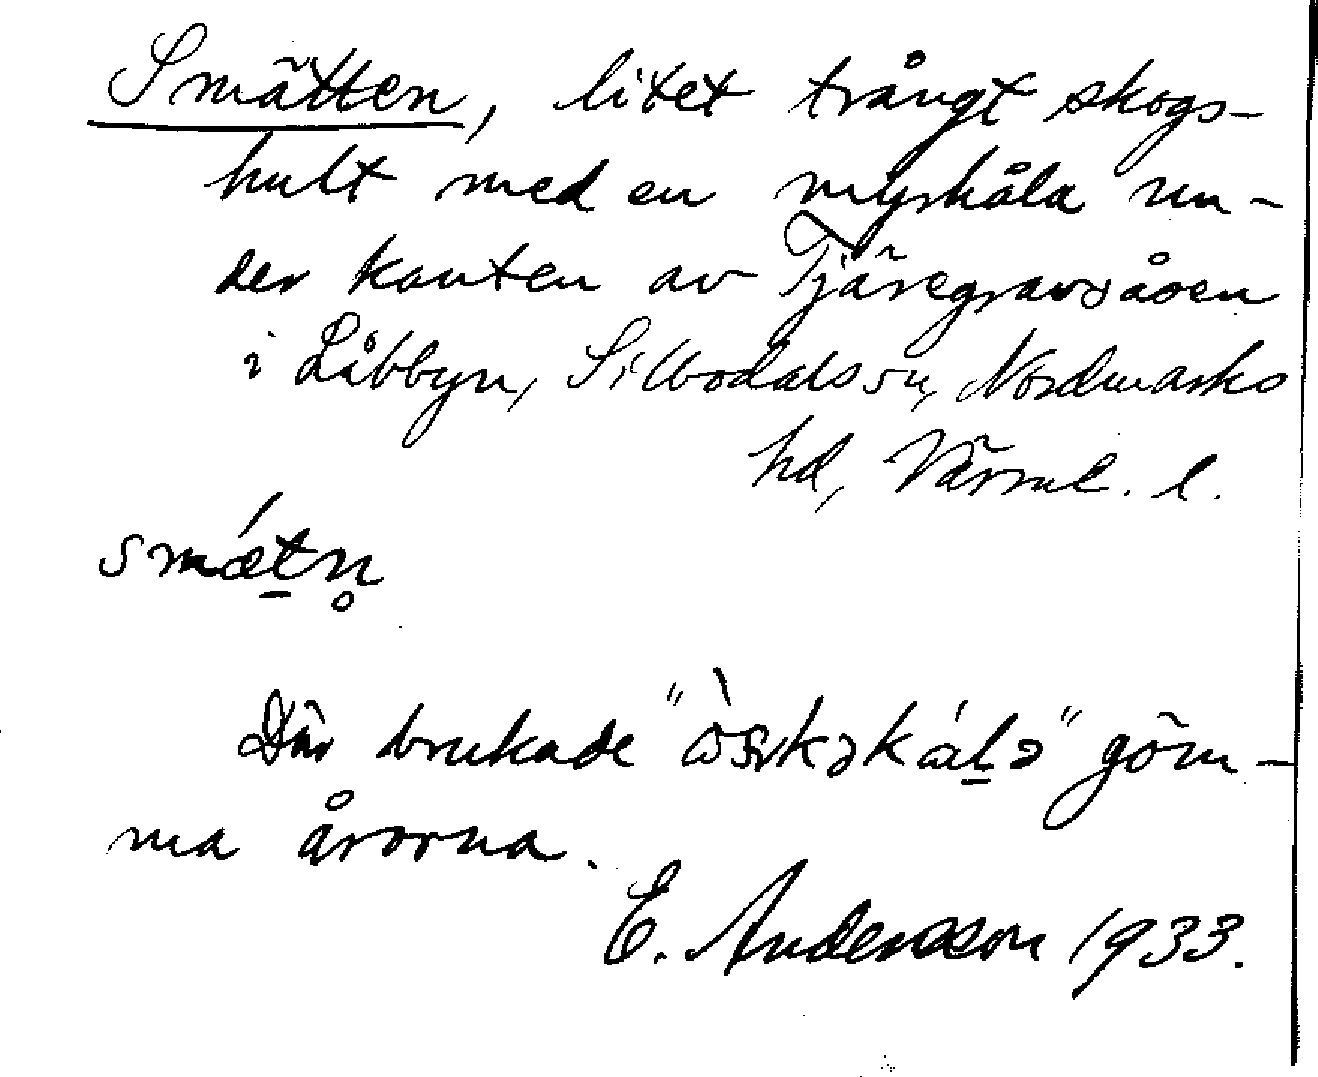 Smätten, litet trångt skogs-
hult med en myrhåla un-
der kanten av Tjäregravsåsen
i Låbbyn, Silbodals sn, Nordmarks
hd, Värml. l.
smǽt̲n̥
Där brukade " " göm-
ma årorna.
E. Andersson 1933.